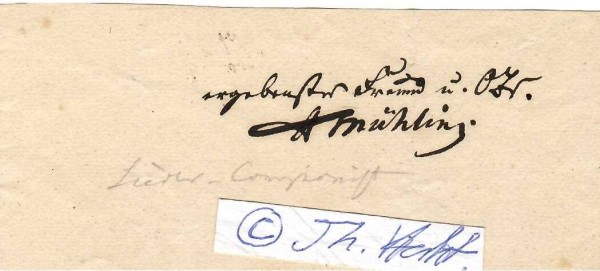 ergebenster Freund u. Br.
A Mühling.
Lieder-Componist
© Th.